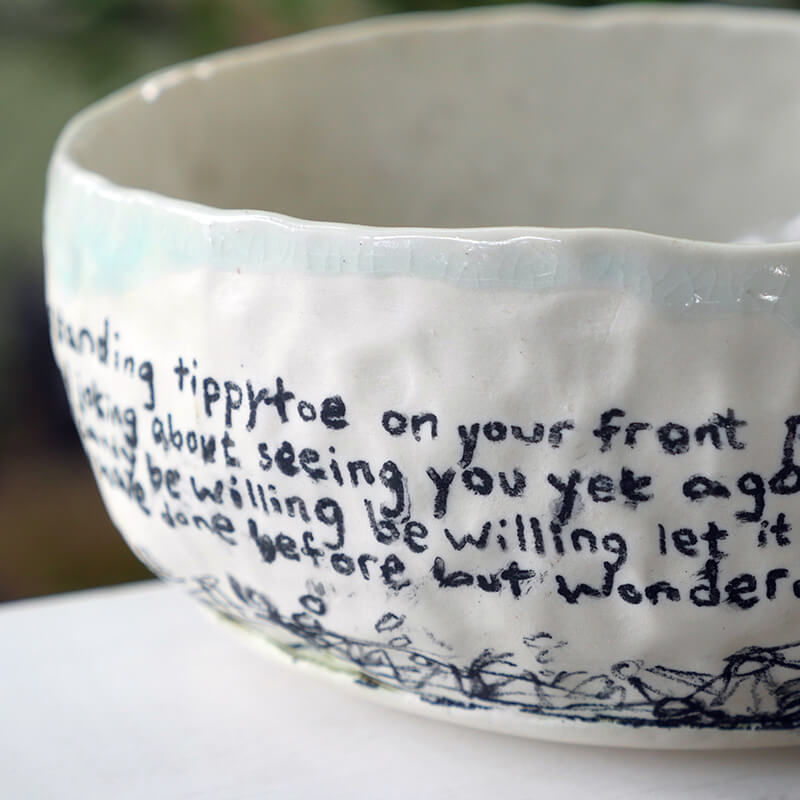 standing tippytoe on your front
joking about seeing you yet ago
be willing be willing let it
have done before but wondero